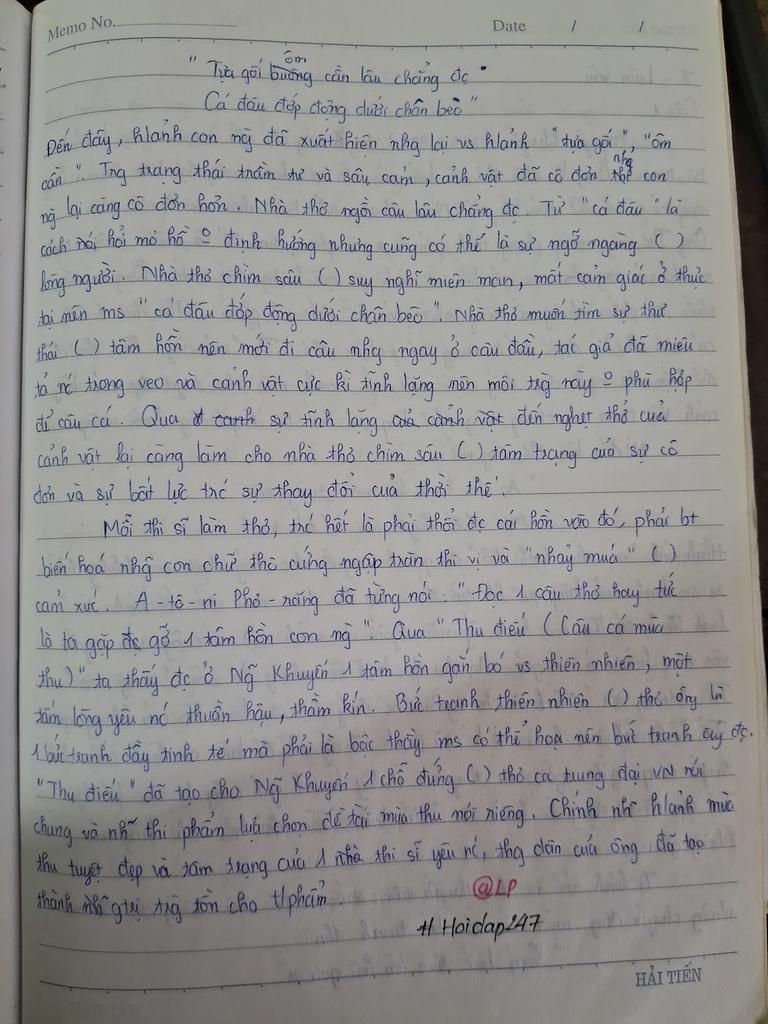 Memo No.
Date / /
ôm
" Tựa gối buông cần lâu chẳng đc
Cá đâu đớp động dưới chân bèo "
Đến đây, h/ảnh con ng đã xuất hiện nhg lại vs h/ảnh " tựa gối ", "ôm
cần ". Trg trạng thái trầm tư và sâu cảm, cảnh vật đã cô đơn thế nhg con
ng lại càng cô đơn hơn. Nhà thơ ngồi câu lâu chẳng đc. Từ "cá đâu " là
cách nói hỏi mơ hồ o định hướng nhưng cũng có thể là sự ngỡ ngàng ( )
lòng người. Nhà thơ chìm sâu ( ) suy nghĩ miên man, mất cảm giác ở thực
tại nên ms " cá đâu đớp động dưới chân bèo ". Nhà thơ muốn tìm sự thư
thái ( ) tâm hồn nên mới đi câu nhg ngay ở câu đầu, tác giả đã miêu
tả nc trong veo và cảnh vật cực kì tĩnh lặng nên môi trg này o phù hợp
để câu cá. Qua sự tĩnh lặng của cảnh vật đến nghẹt thở của
cảnh vật lại càng làm cho nhà thơ chìm sâu ( ) tâm trạng của sự cô
đơn và sự bất lực trc sự thay đổi của thời thế.
Mỗi thi sĩ làm thơ, trc hết là phải thổi đc cái hồn vào đó, phải bt
biến hoá nhg con chữ thô cứng ngập tràn thi vị và "nhảy múa " ( )
cảm xúc. A-tô-ni Phơ-răng đã từng nói : "Đọc 1 câu thơ hay tức
là ta gặp gỡ 1 tâm hồn con ng ". Qua " Thu điếu ( Câu cá mùa
thu) " ta thấy đc ở Ng Khuyến 1 tâm hồn gắn bó vs thiên nhiên, một
tấm lòng yêu nc thuần hậu, thầm kín. Bức tranh thiên nhiên ( ) thơ ông là
1 bức tranh đầy tinh tế mà phải là bậc thầy ms có thể hoạ nên bức tranh ấy đc.
"Thu điếu " đã tạo cho Ng Khuyến 1 chỗ đứng ( ) thơ ca trung đại VN nói
chung và nhg thi phẩm lựa chọn đề tài mùa thu nói riêng. Chính nhg h/ảnh mùa
thu tuyệt đẹp và tâm trạng của 1 nhà thi sĩ yêu nc, thg dân của ông đã tạo
thành nhg gtrị trg tồn cho t/phẩm.
@LP
# Hoidap247
HẢI TIẾN